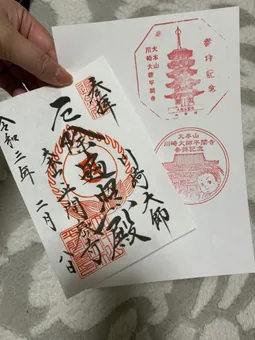 奉拝
川崎大師
厄除遍照殿
令和三年二月
参拝記念
大本山
川崎大師平間寺
大本山
川崎大師平間寺
参拝記念